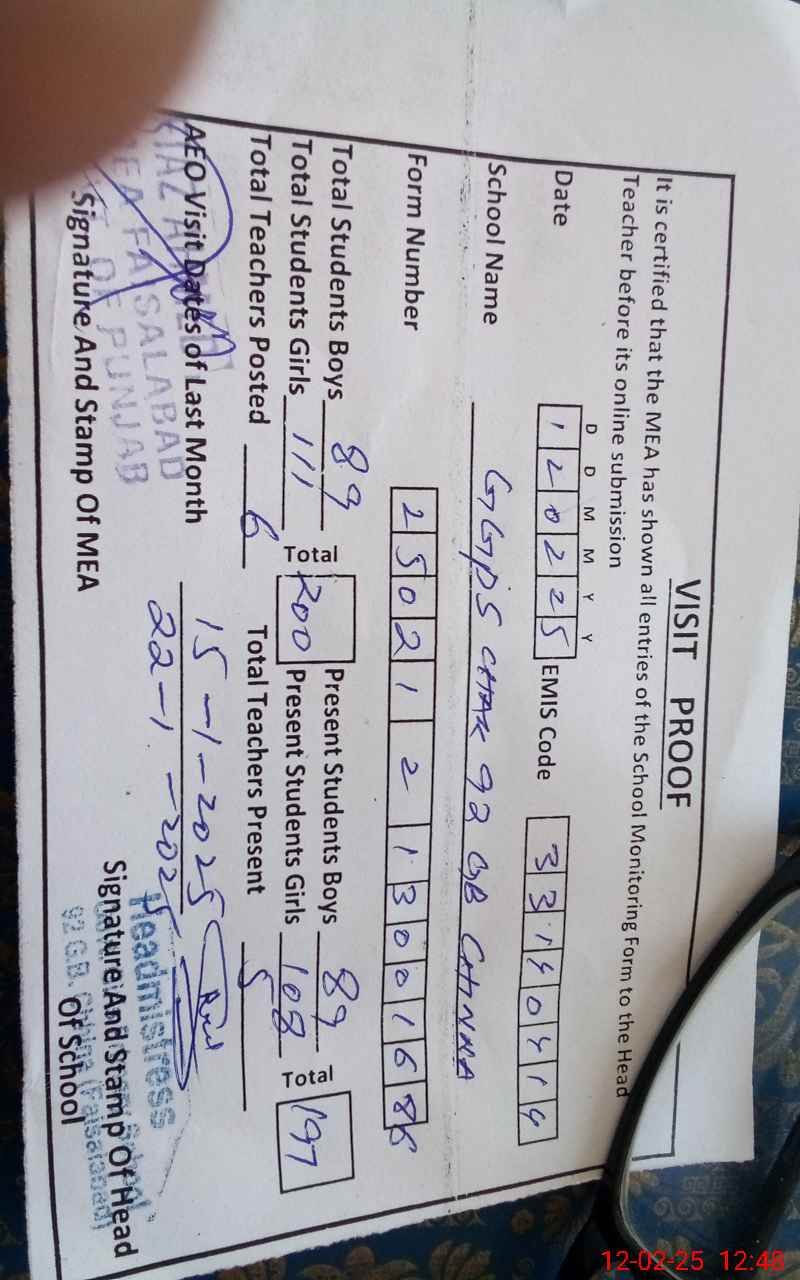 VISIT PROOF
It is certified that the MEA has shown all entries of the School Monitoring Form to the Head
Teacher before its online submission
D D M M Y Y
Date 1 2 0 2 2 5 EMIS Code 3 3 1 4 0 4 1 4
School Name GGPS CHAK 92 GB CHINNA
Form Number 2 5 0 2 1 2 1 3 0 0 1 6 8
Total Students Boys 89 Total 200 Present Students Boys 89 Total 197
Total Students Girls 111 Present Students Girls 108
Total Teachers Posted 6 Total Teachers Present 5
AEO Visit Dates of Last Month 15-1-2025
22-1-2025
MEA FAISALABAD
OF PUNJAB
Signature And Stamp Of MEA
Headmistress
92 G.B. (Faisalabad)
Signature And Stamp Of Head
Of School
12-02-25 12:48